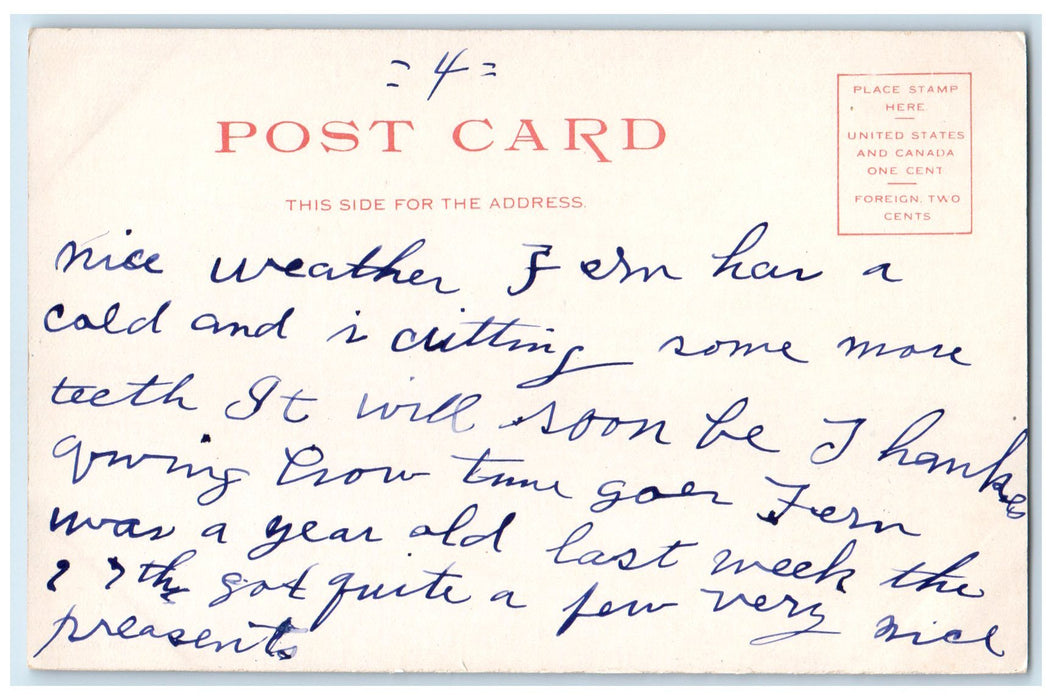 = 4 =
POST CARD
THIS SIDE FOR THE ADDRESS.
PLACE STAMP
HERE
UNITED STATES
AND CANADA
ONE CENT
FOREIGN, TWO
CENTS
nice weather Fern has a
cold and is cutting some more
teeth It will soon be Thanks
giving how time goes Fern
was a year old last week the
27th got quite a few very nice
preasents